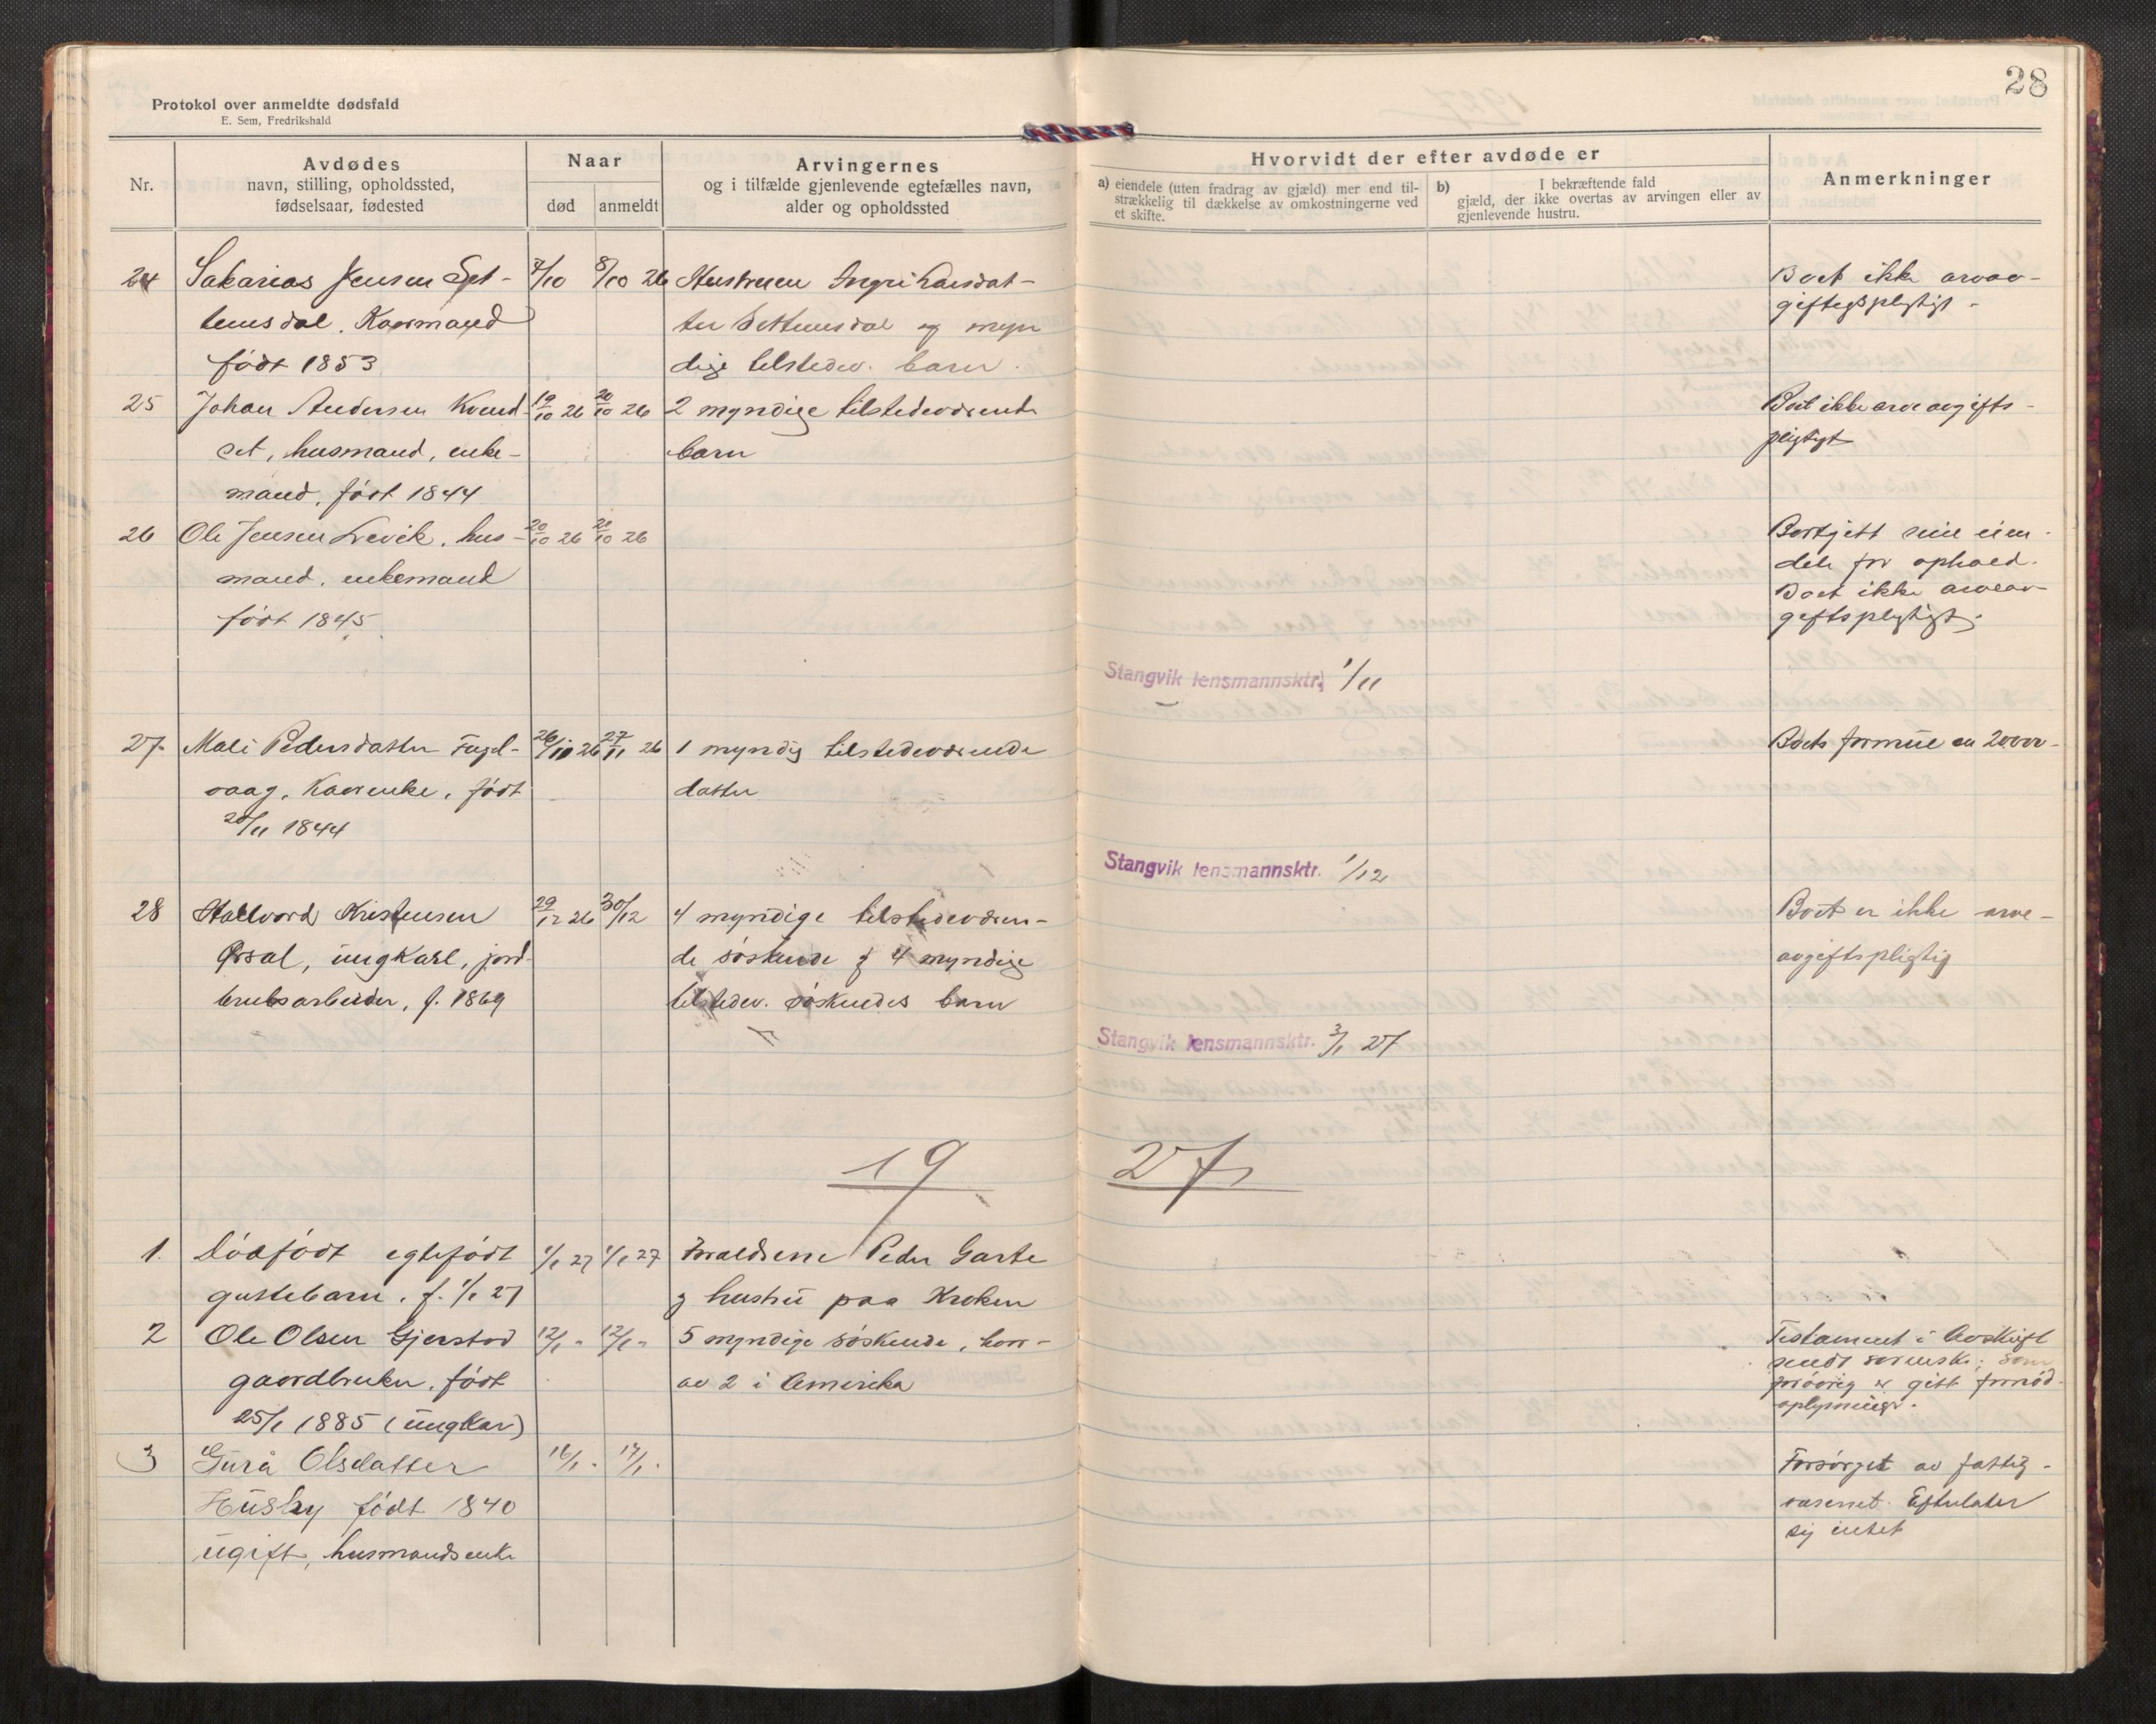 28
Protokol over anmeldte dødsfald
E. Sem, Fredrikshald
Nr.
Avdødes
navn, stilling, opholdssted,
fødselsaar, fødested
Naar
død
anmeldt
Arvingernes
og i tilfælde gjenlevende egtefælles navn,
alder og opholdssted
Hvorvidt der efter avdøde er
a) eiendele (uten fradrag av gjæld) mer end til-
strækkelig til dækkelse av omkostningerne ved
et skifte.
b) I bekræftende fald
gjæld, der ikke overtas av arvingen eller av
gjenlevende hustru.
Anmerkninger
24 Sakarias Jensen Set- 7/10 8/10 26 Hustruen Ingri Larsdat- Boet ikke arvav-
temsdal. Kaarmand ter Settemsdal og myn giftsplygtigt.
født 1853 dige tilstedev. barn.
25 Johan Andersen Kvend 19/10 26 20/10 26 2 myndige tilstedeværende Boet ikke arveavgifts-
set, husmand, enke- barn pligtigt
mand, født 1844
26 Ole Jensen Krevik, hus- 20/10 26 21/10 26 Bortgitt sine eien-
mand, enkemand dele for ophold.
født 1845 Boet ikke arveav-
giftsplygtigt.
Stangvik lensmannsktr. 1/11
27. Mali Pedersdatter Fugel- 26/11 26 27/11 26 1 myndig tilstedeværende Boets formue ca 2000
vaag, Kaarenke, født datter
20/11 1844
Stangvik lensmannsktr. 1/12
28 Hallvord Kristensen 29/12 26 30/12 4 myndige tilstedeværen- Boet er ikke arve-
Ørsal, ungkarl, jord- de søskende og 4 myndige avgiftspligtig
bruksarbeider, f. 1869 tilstedev. søskendes barn
Stangvik lensmannsktr. 3/1 27
19 27
1. Dødfødt egtefødt 1/1 27 1/1 27 Foreldrene Peder Garte
guttebarn. f. 1/1 27 og hustru paa Kroken
2 Ole Olsen Gjerstad 12/1 " 12/1 " 5 myndige søskende, hvor- Testament i avskrift
gaardbruker, født av 2 i Amerika sendt sorensk. som
25/1 1885 (ungkar) forøvrig er gitt fornød.
oplysninger.
3 Gurå Olsdatter 16/1 " 17/1 " Forsørget av fattig-
Husby født 1840 væsenet. Efterlater
ugift, husmandsenke sig intet